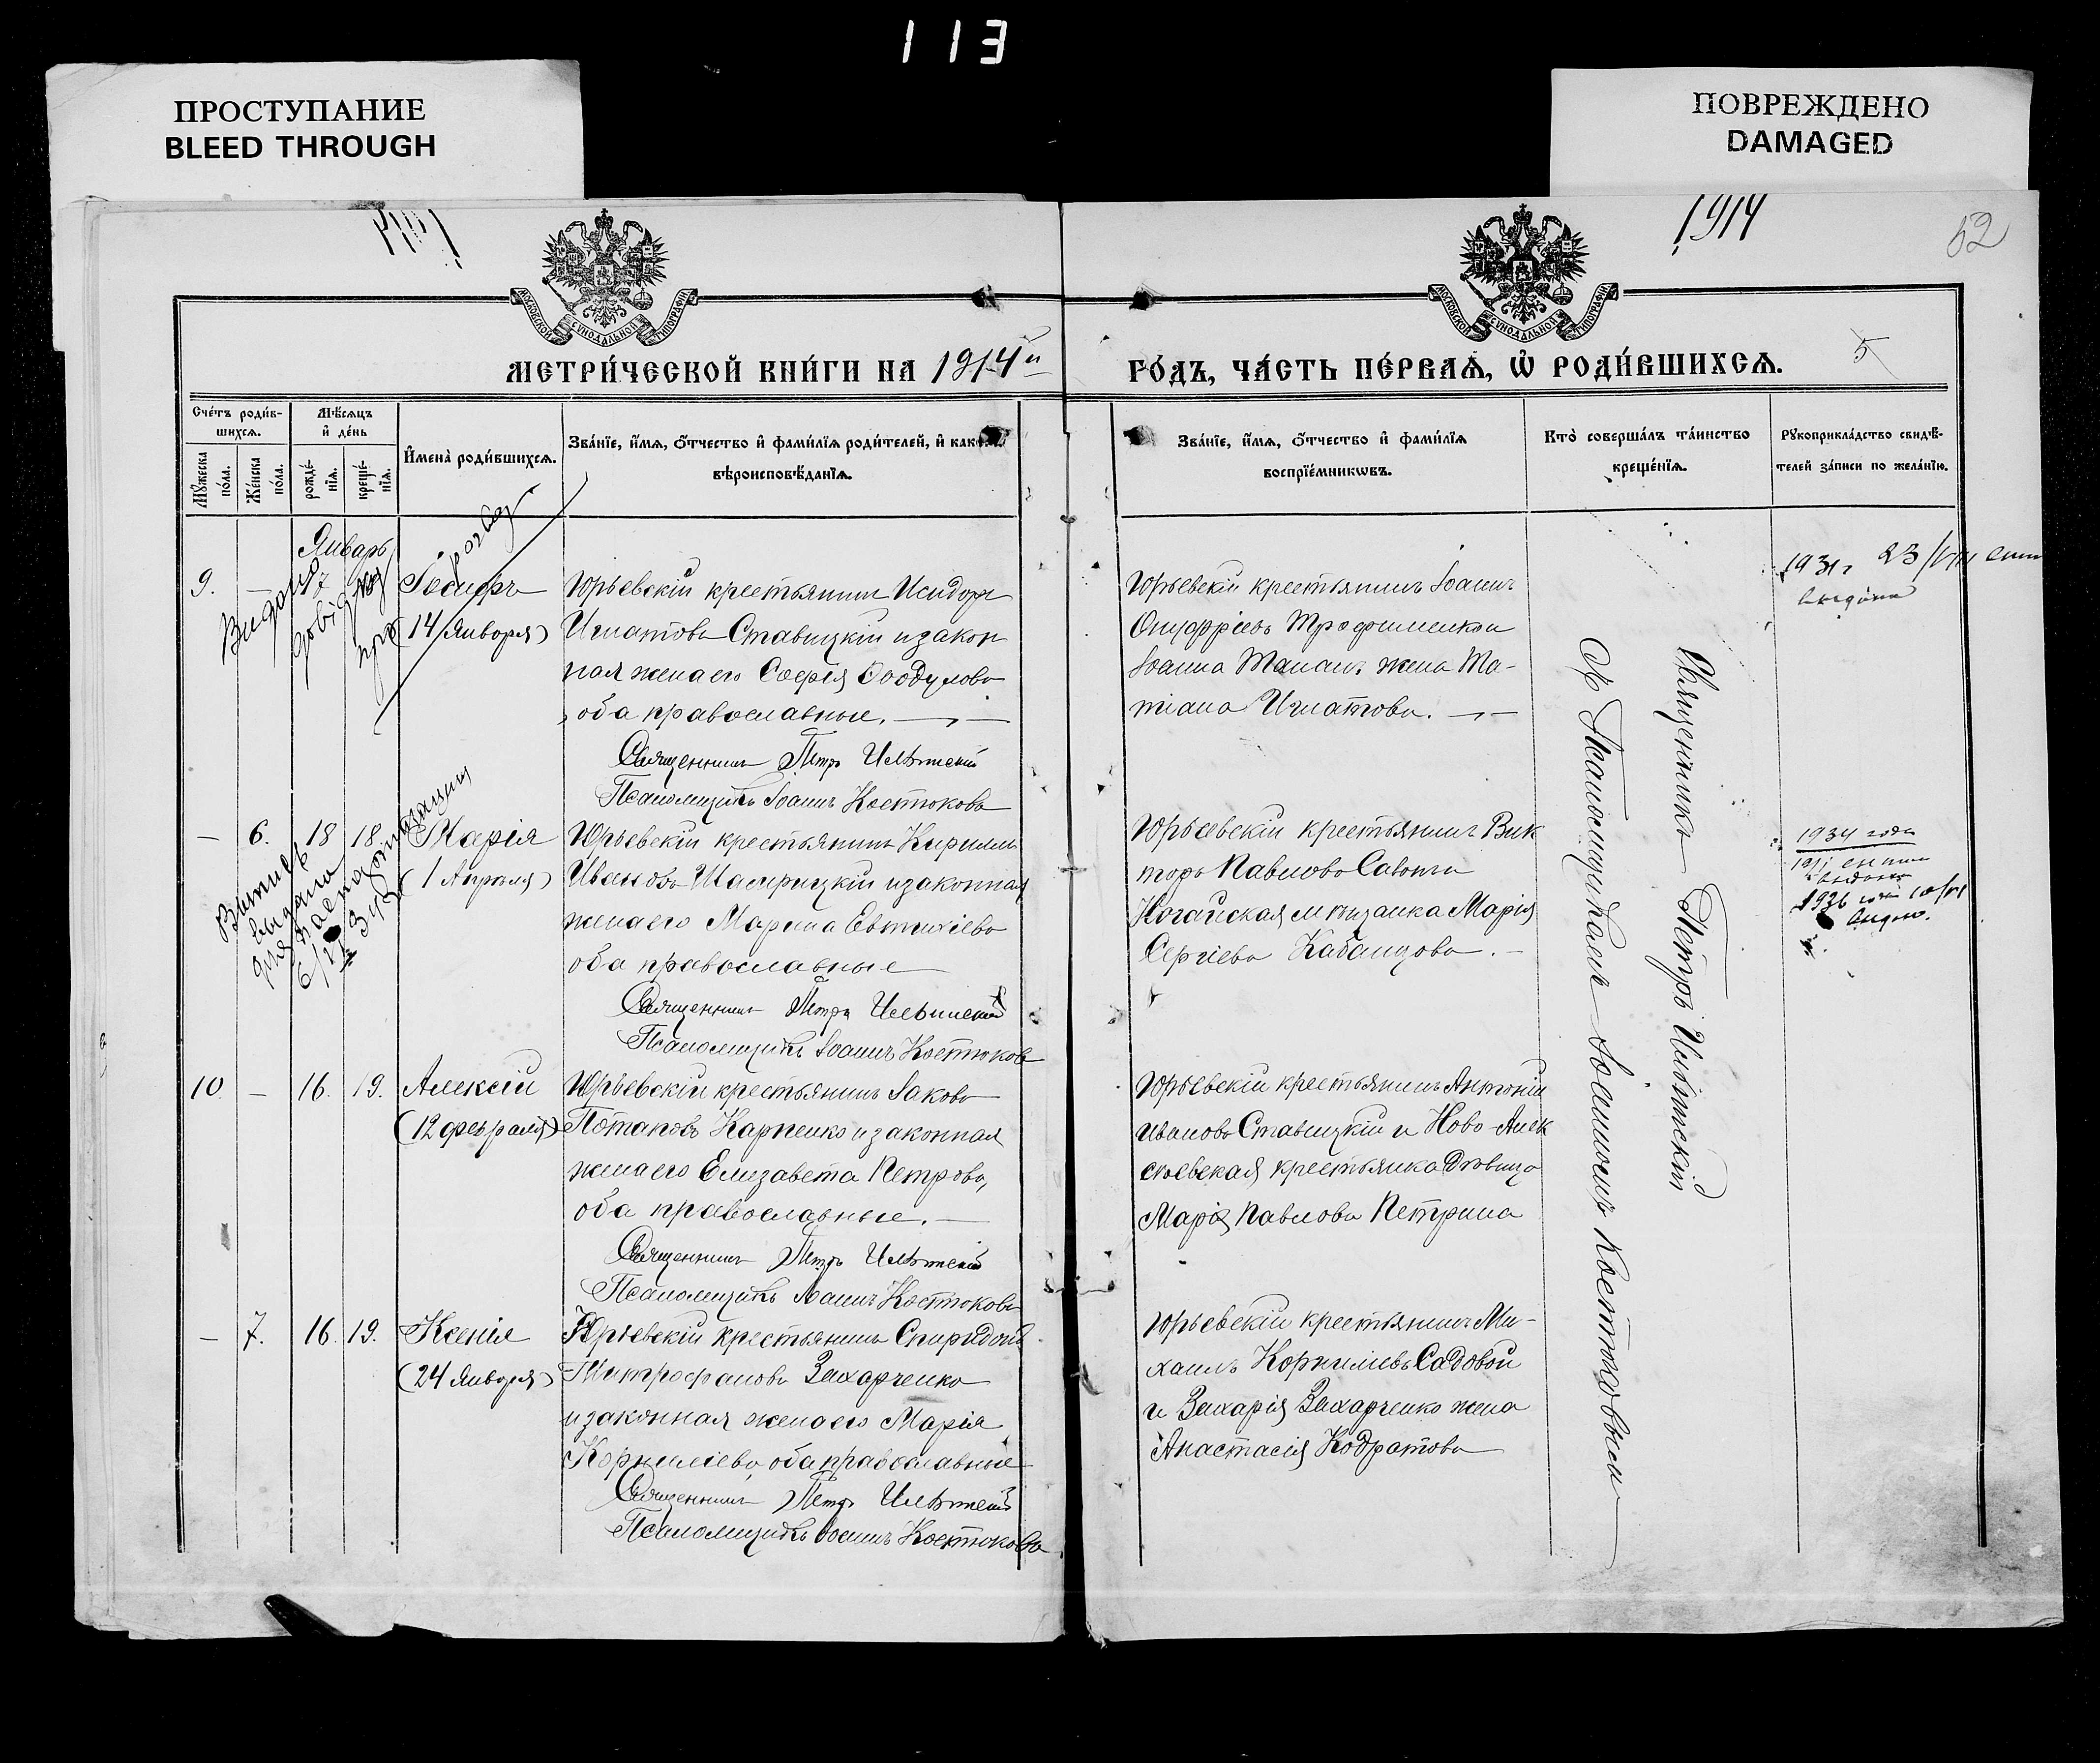 113
ПРОСТУПАНИЕ
BLEED THROUGH
ПОВРЕЖДЕНО
DAMAGED
1914
52
МОСКОВСКОЙ СѴНОДАЛЬНОЙ ТИПОГРАФІИ
МОСКОВСКОЙ СѴНОДАЛЬНОЙ ТИПОГРАФІИ
МЕТРИ́ЧЕСКОЙ КНИ́ГИ НА 1914й
ГО́ДЪ, ЧА́СТЬ ПЕ́РВАѦ, Ѡ РОДИ́ВШИХСѦ.
5
Сче́тъ роди́в-
шихсѧ.
Мѣ́сѧцъ
и де́нь
Мꙋ́жеска по́ла.
Же́нска по́ла.
рожде́-нїѧ.
креще́-нїѧ.
И҆мена̀ роди́вшихсѧ.
Зва́нїе, и҆́мѧ, ѻ҆́тчество и҆ фами́лїѧ роди́телей, и҆ како́гѡ
вѣроисповѣ́данїѧ.
Зва́нїе, и҆́мѧ, ѻ҆́тчество и҆ фами́лїѧ
воспрїе́мникѡвъ.
Кто̀ соверша́лъ та́инство
креще́нїѧ.
Рꙋкоприкла́дство свидѣ́-
телей за́писи по жела́нїю.
Январь
9. — 17
Іосифъ
(14 Января)
Юрьевскій крестьянинъ Исидоръ
Игнатовъ Ставицкій и закон
ная жена его Софія Ѳеодулова
оба православные.
Священникъ Петръ Ильинскій
Псаломщикъ Іоаннъ Костюковъ
Юрьевскій крестьянинъ Іоаннъ
Онуфріевъ Трофименко и
Іоанна жена Та-
тіана Игнатова.
1931г 23/VIII
выдана
Видано
— 6. 18 18.
Марія
(1 Апреля)
Юрьевскій крестьянинъ Кириллъ
Ивановъ и законная
жена его Марина Евтихіева
оба православные
Священникъ Петръ Ильинскій
Псаломщикъ Іоаннъ Костюковъ
Юрьевскій крестьянинъ Вик
торъ Павловъ
Ногайская мѣщанка Марія
Сергіева
1934 года
1936
выдано
для паспортизации
10. — 16. 19.
Алексій
(12 февраля)
Юрьевскій крестьянинъ Іаковъ
Потаповъ Карпенко и законная
жена его Елизавета Петрова,
оба православные.
Священникъ Петръ Ильинскій
Псаломщикъ Іоаннъ Костюковъ
Юрьевскій крестьянинъ Антоній
Ивановъ Ставицкій и Ново-Алек
сѣевская крестьянка дѣвица
Марія Павлова Петрина
— 7. 16. 19.
Ксенія
(24 Января)
Юрьевскій крестьянинъ Спиридонъ
Митрофановъ Захарченко
и законная жена его Марія
Корниліева, оба православные
Священникъ Петръ Ильинскій
Псаломщикъ Іоаннъ Костюковъ
Юрьевскій крестьянинъ Ми-
хаилъ Корниліевъ Садовой
и Захарія Захарченко жена
Анастасія Кодратова
Священникъ Петръ Ильинскій
Съ Псаломщикомъ Іоанномъ Костюковымъ